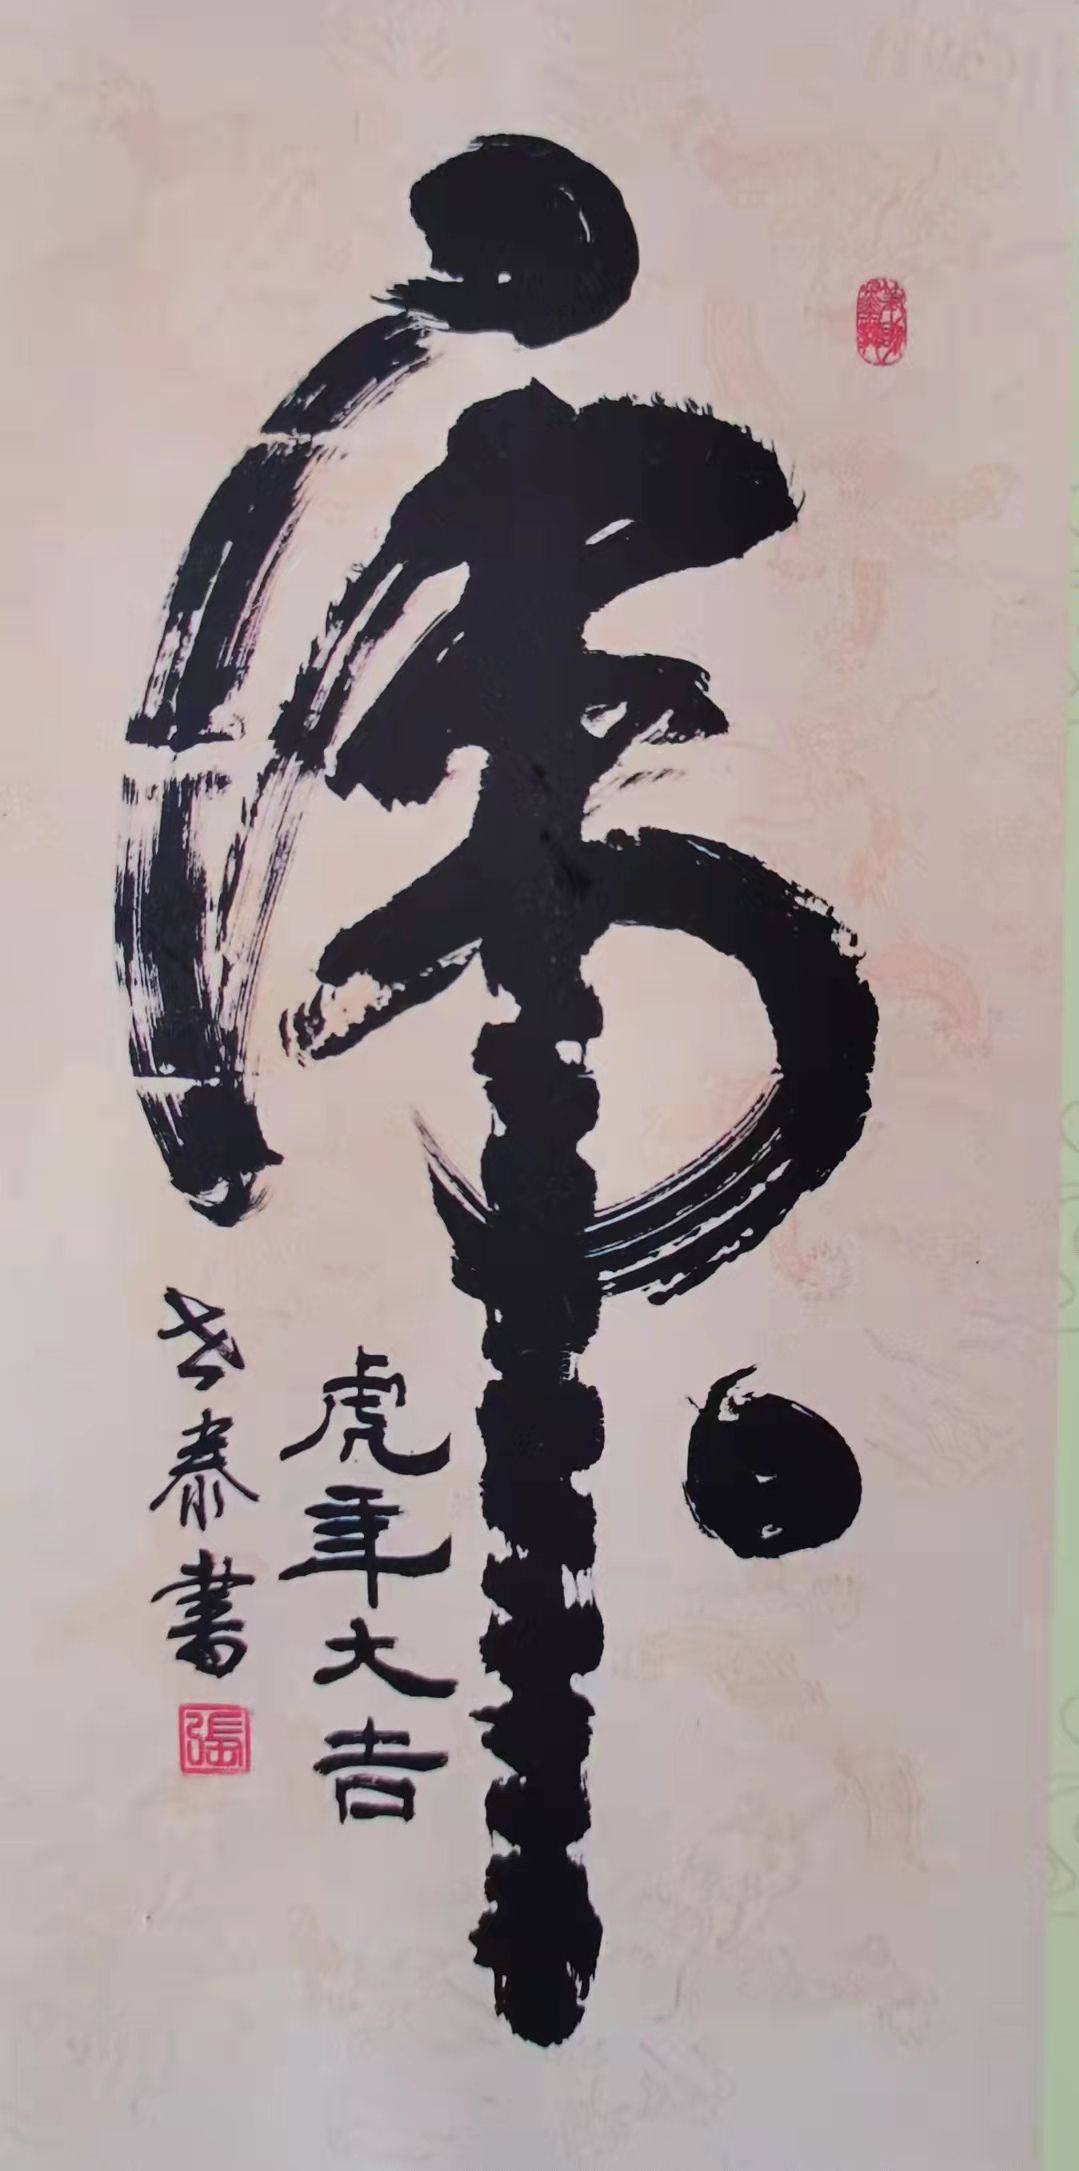 虎
虎年大吉
老泰書
張